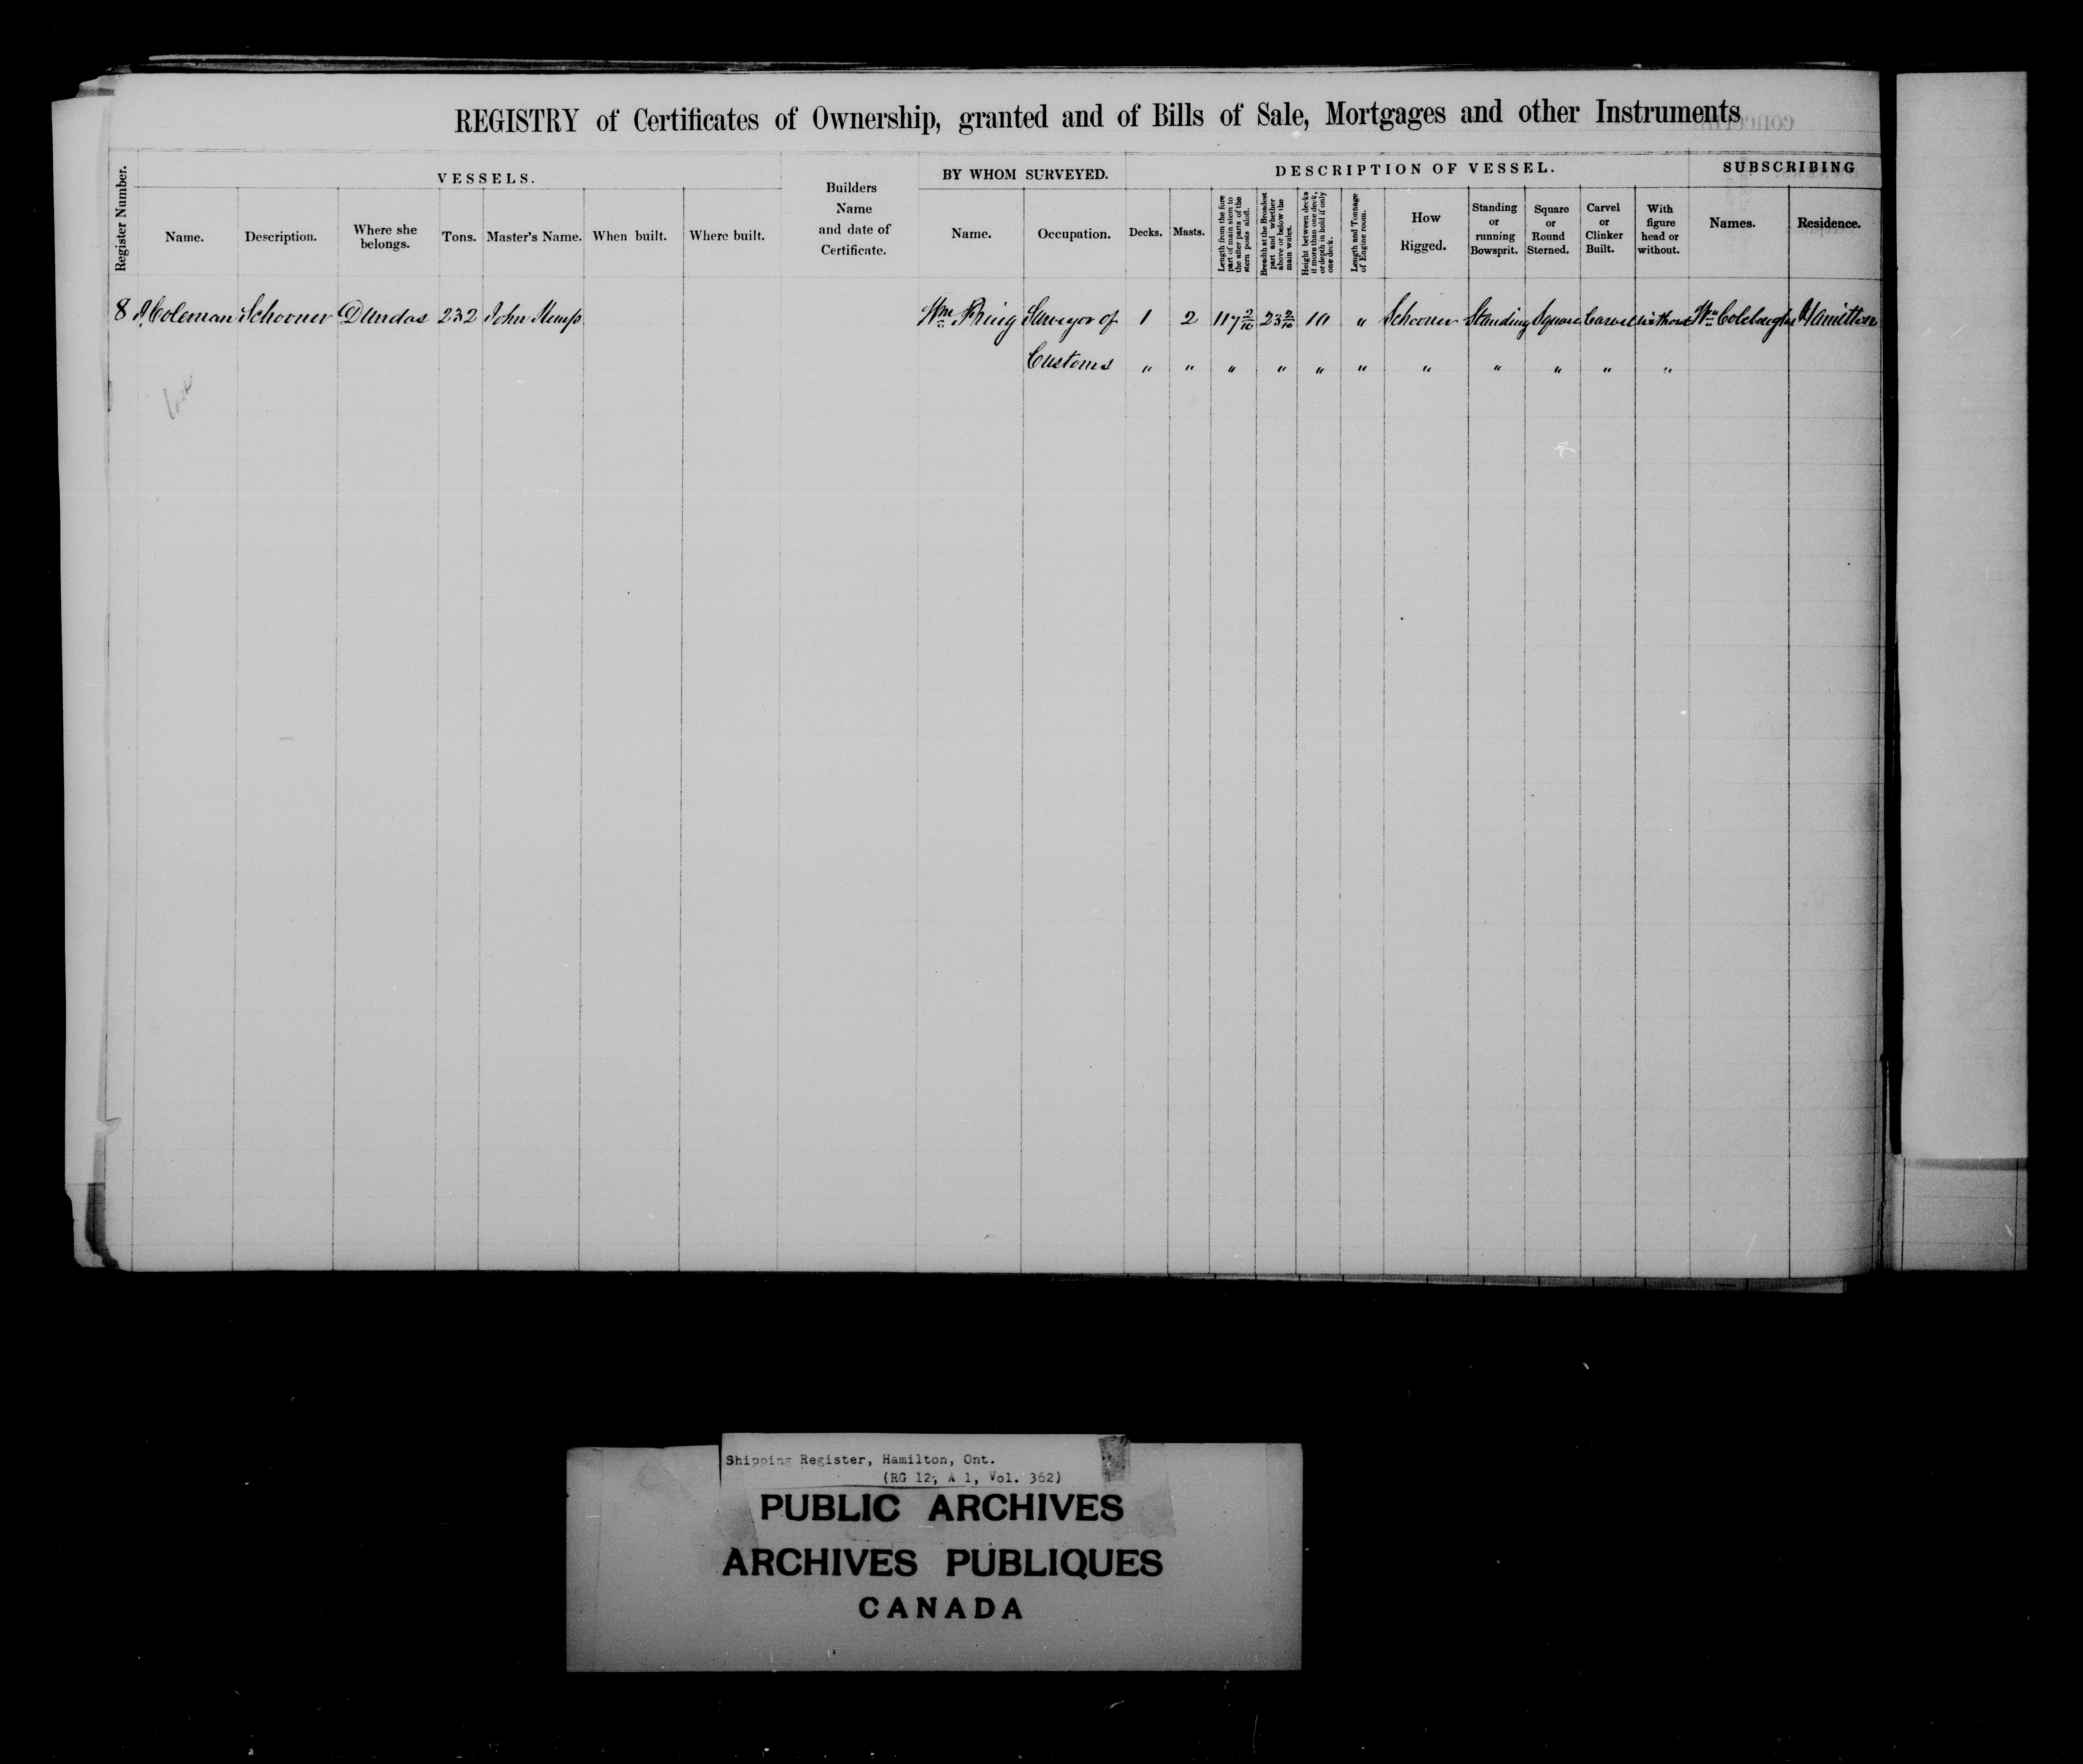 REGISTRY of Certificates of Ownership, granted and of Bills of Sale, Mortgages and other Instruments
Register Number.
VESSELS.
Name.
Description.
Where she
belongs.
Tons.
Master's Name.
When built.
Where built.
Builders
Name
and date of
Certificate.
BY WHOM SURVEYED.
Name.
Occupation.
DESCRIPTION OF VESSEL.
Decks.
Masts.
Length from the fore
part of main stem to
the after parts of the
stern posts aloft.
Breadth at the Broadest
part and whether
above or below the
main wales.
Height between decks
if more than one deck,
or depth in hold if only
one deck.
Length and Tonnage
of Engine room.
How
Rigged.
Standing
or
running
Bowsprit.
Square
or
Round
Sterned.
Carvel
or
Clinker
Built.
With
figure
head or
without.
SUBSCRIBING
Names.
Residence.
8 J. Coleman Schooner Dundas 232 John Kemp Wm Surveyor of 1 2 117 2/10 23 2/10 10 " Schooner Standing Square Carvel without Wm Hamilton
Customs " " " " " " " " " " "
Shipping Register, Hamilton, Ont.
(RG 12, A 1, Vol. 362)
PUBLIC ARCHIVES
ARCHIVES PUBLIQUES
CANADA